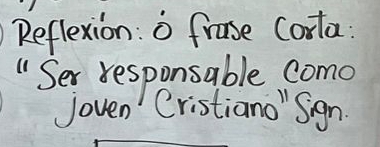 Reflexión: ó frase corta:
"Ser responsable como
joven Cristiano" Sign.